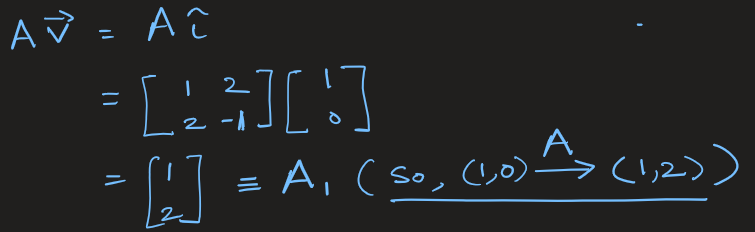 A v⃗ = A î
= [1 2; 2 -1] [1; 0]
= [1; 2] ≡ A₁ (so, (1,0) →ᴬ (1,2))